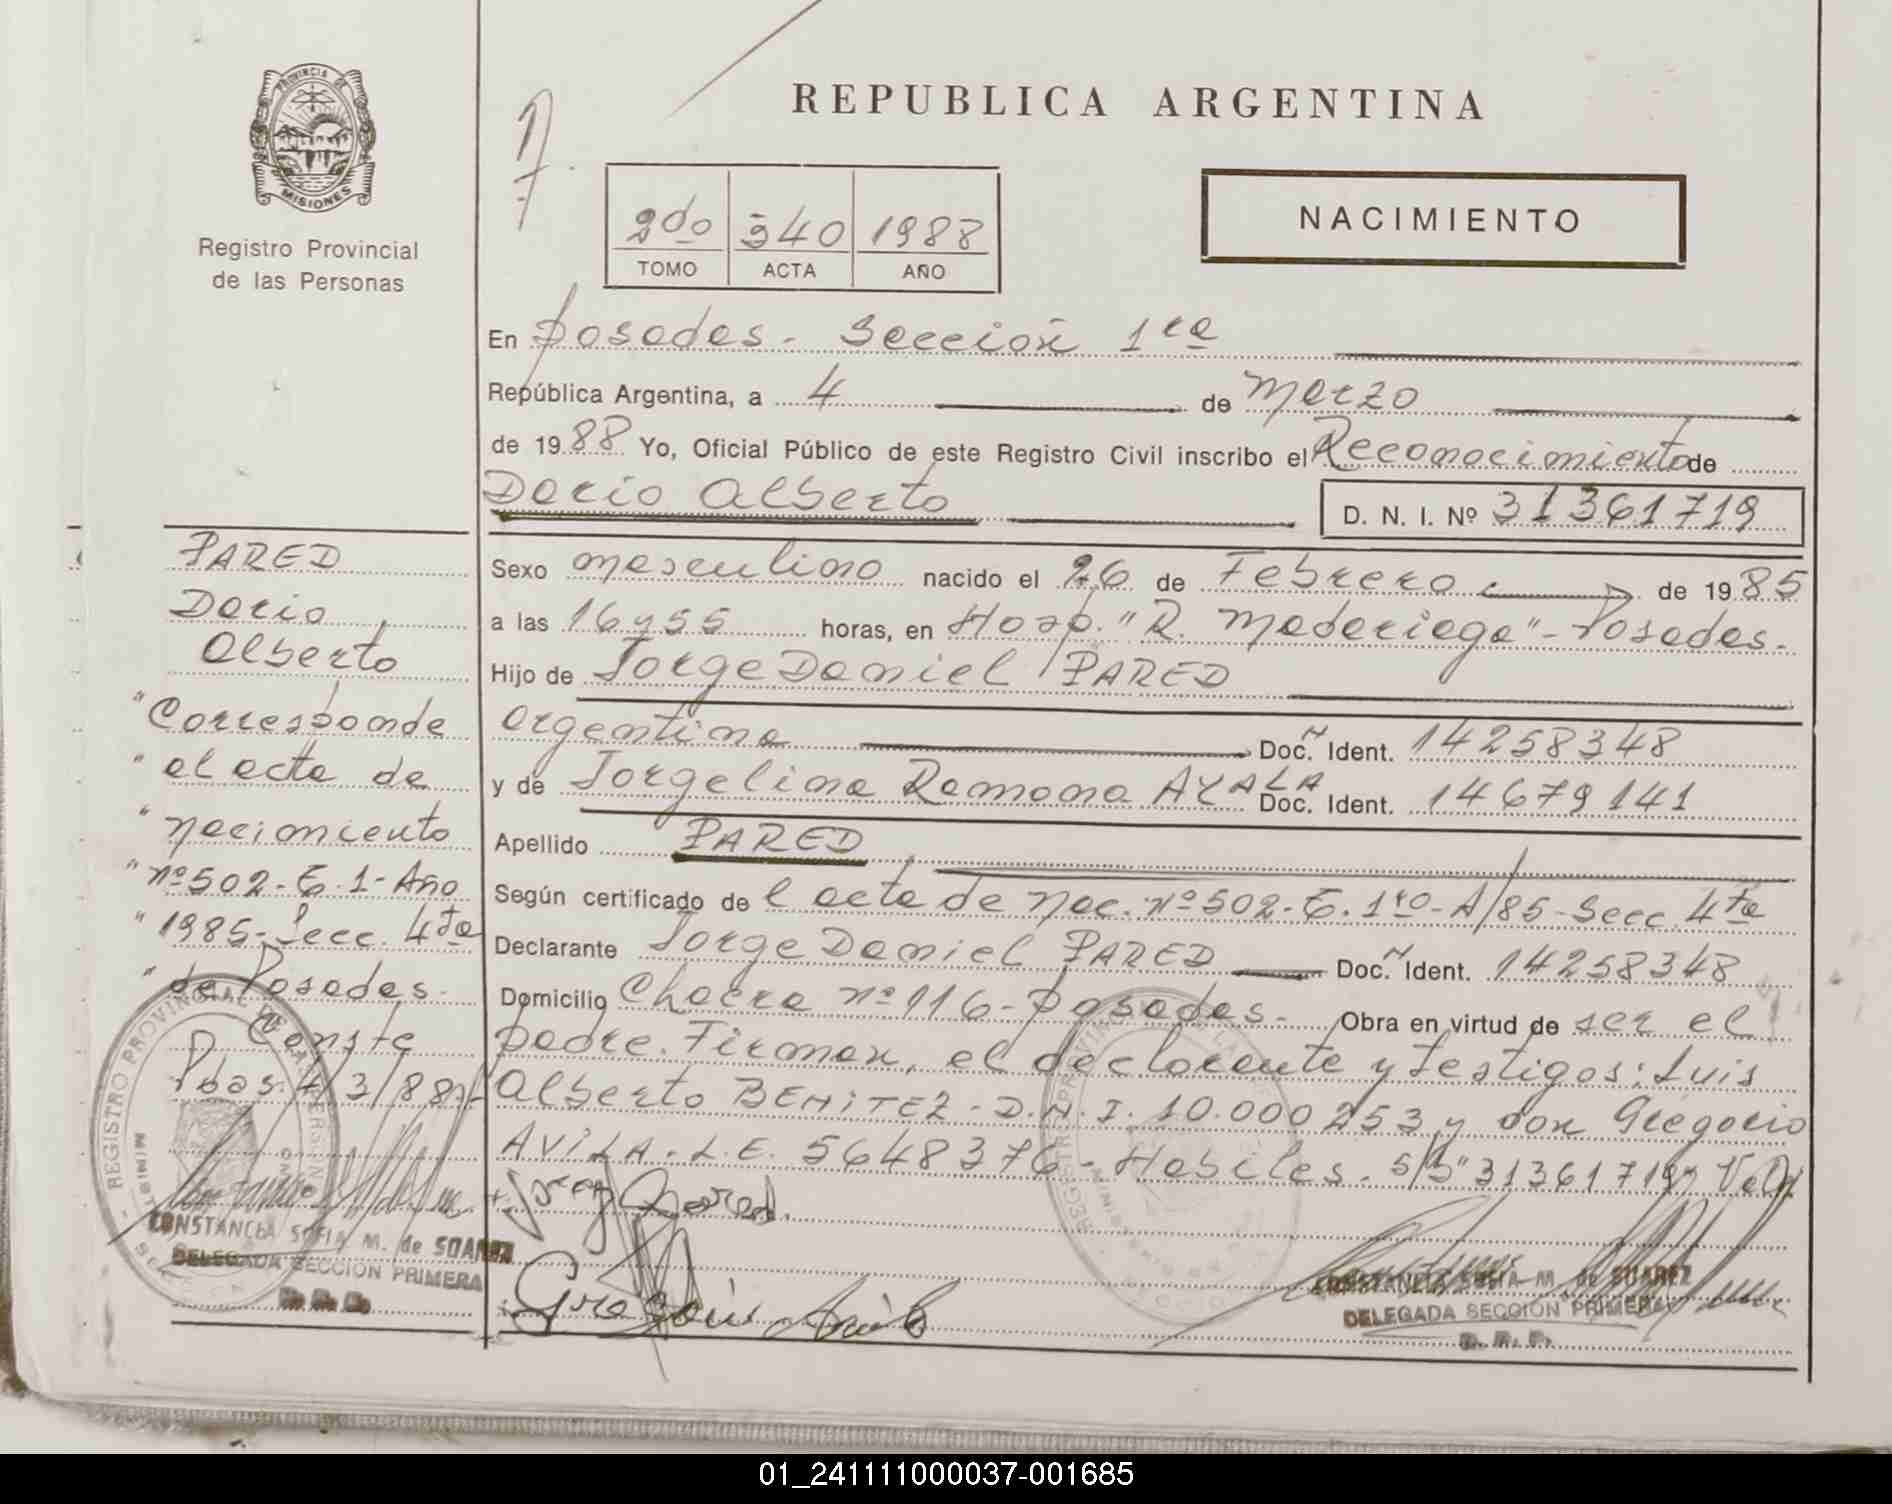 PROVINCIA DE
MISIONES
Registro Provincial
de las Personas
REPUBLICA ARGENTINA
NACIMIENTO
2do 340 1988
TOMO ACTA AÑO
En Posadas - Sección 1ra
República Argentina, a 4 de Marzo
de 1988 Yo, Oficial Público de este Registro Civil inscribo el Reconocimiento de
Dario Alberto D. N. I. Nº 31361719
Sexo masculino nacido el 26 de Febrero de 1985
a las 16 y 55 horas, en Hosp. "R. Madariaga" - Posadas.
Hijo de Jorge Daniel PARED
argentino Doc. Ident. 14258348
y de Jorgelina Ramona AYALA Doc. Ident. 14679141
Apellido PARED
Según certificado de l acta de nac. nº 502 - T. 1ro - A/85 - Secc. 4ta
Declarante Jorge Daniel PARED Doc. Ident. 14258348
Domicilio Chacra nº 116 - Posadas. Obra en virtud de ser el
padre. Firman, el declarante y testigos: Luis
Alberto BENITEZ - D.N.I. 10.000253 y don Gregorio
AVILA - L.E. 5648376 - Habiles. s/b "31361719" Vale
CONSTANCIA SOFIA M. de SUAREZ
DELEGADA SECCION PRIMERA
PARED
Dario
Alberto
"Corresponde
"al acta de
"nacimiento
"nº 502 - T. 1 - Año
"1985 - Secc. 4ta
"de Posadas.
Conste
Pdas. 4/3/88
CONSTANCIA SOFIA M. de SUAREZ
DELEGADA SECCION PRIMERA
01_241111000037-001685